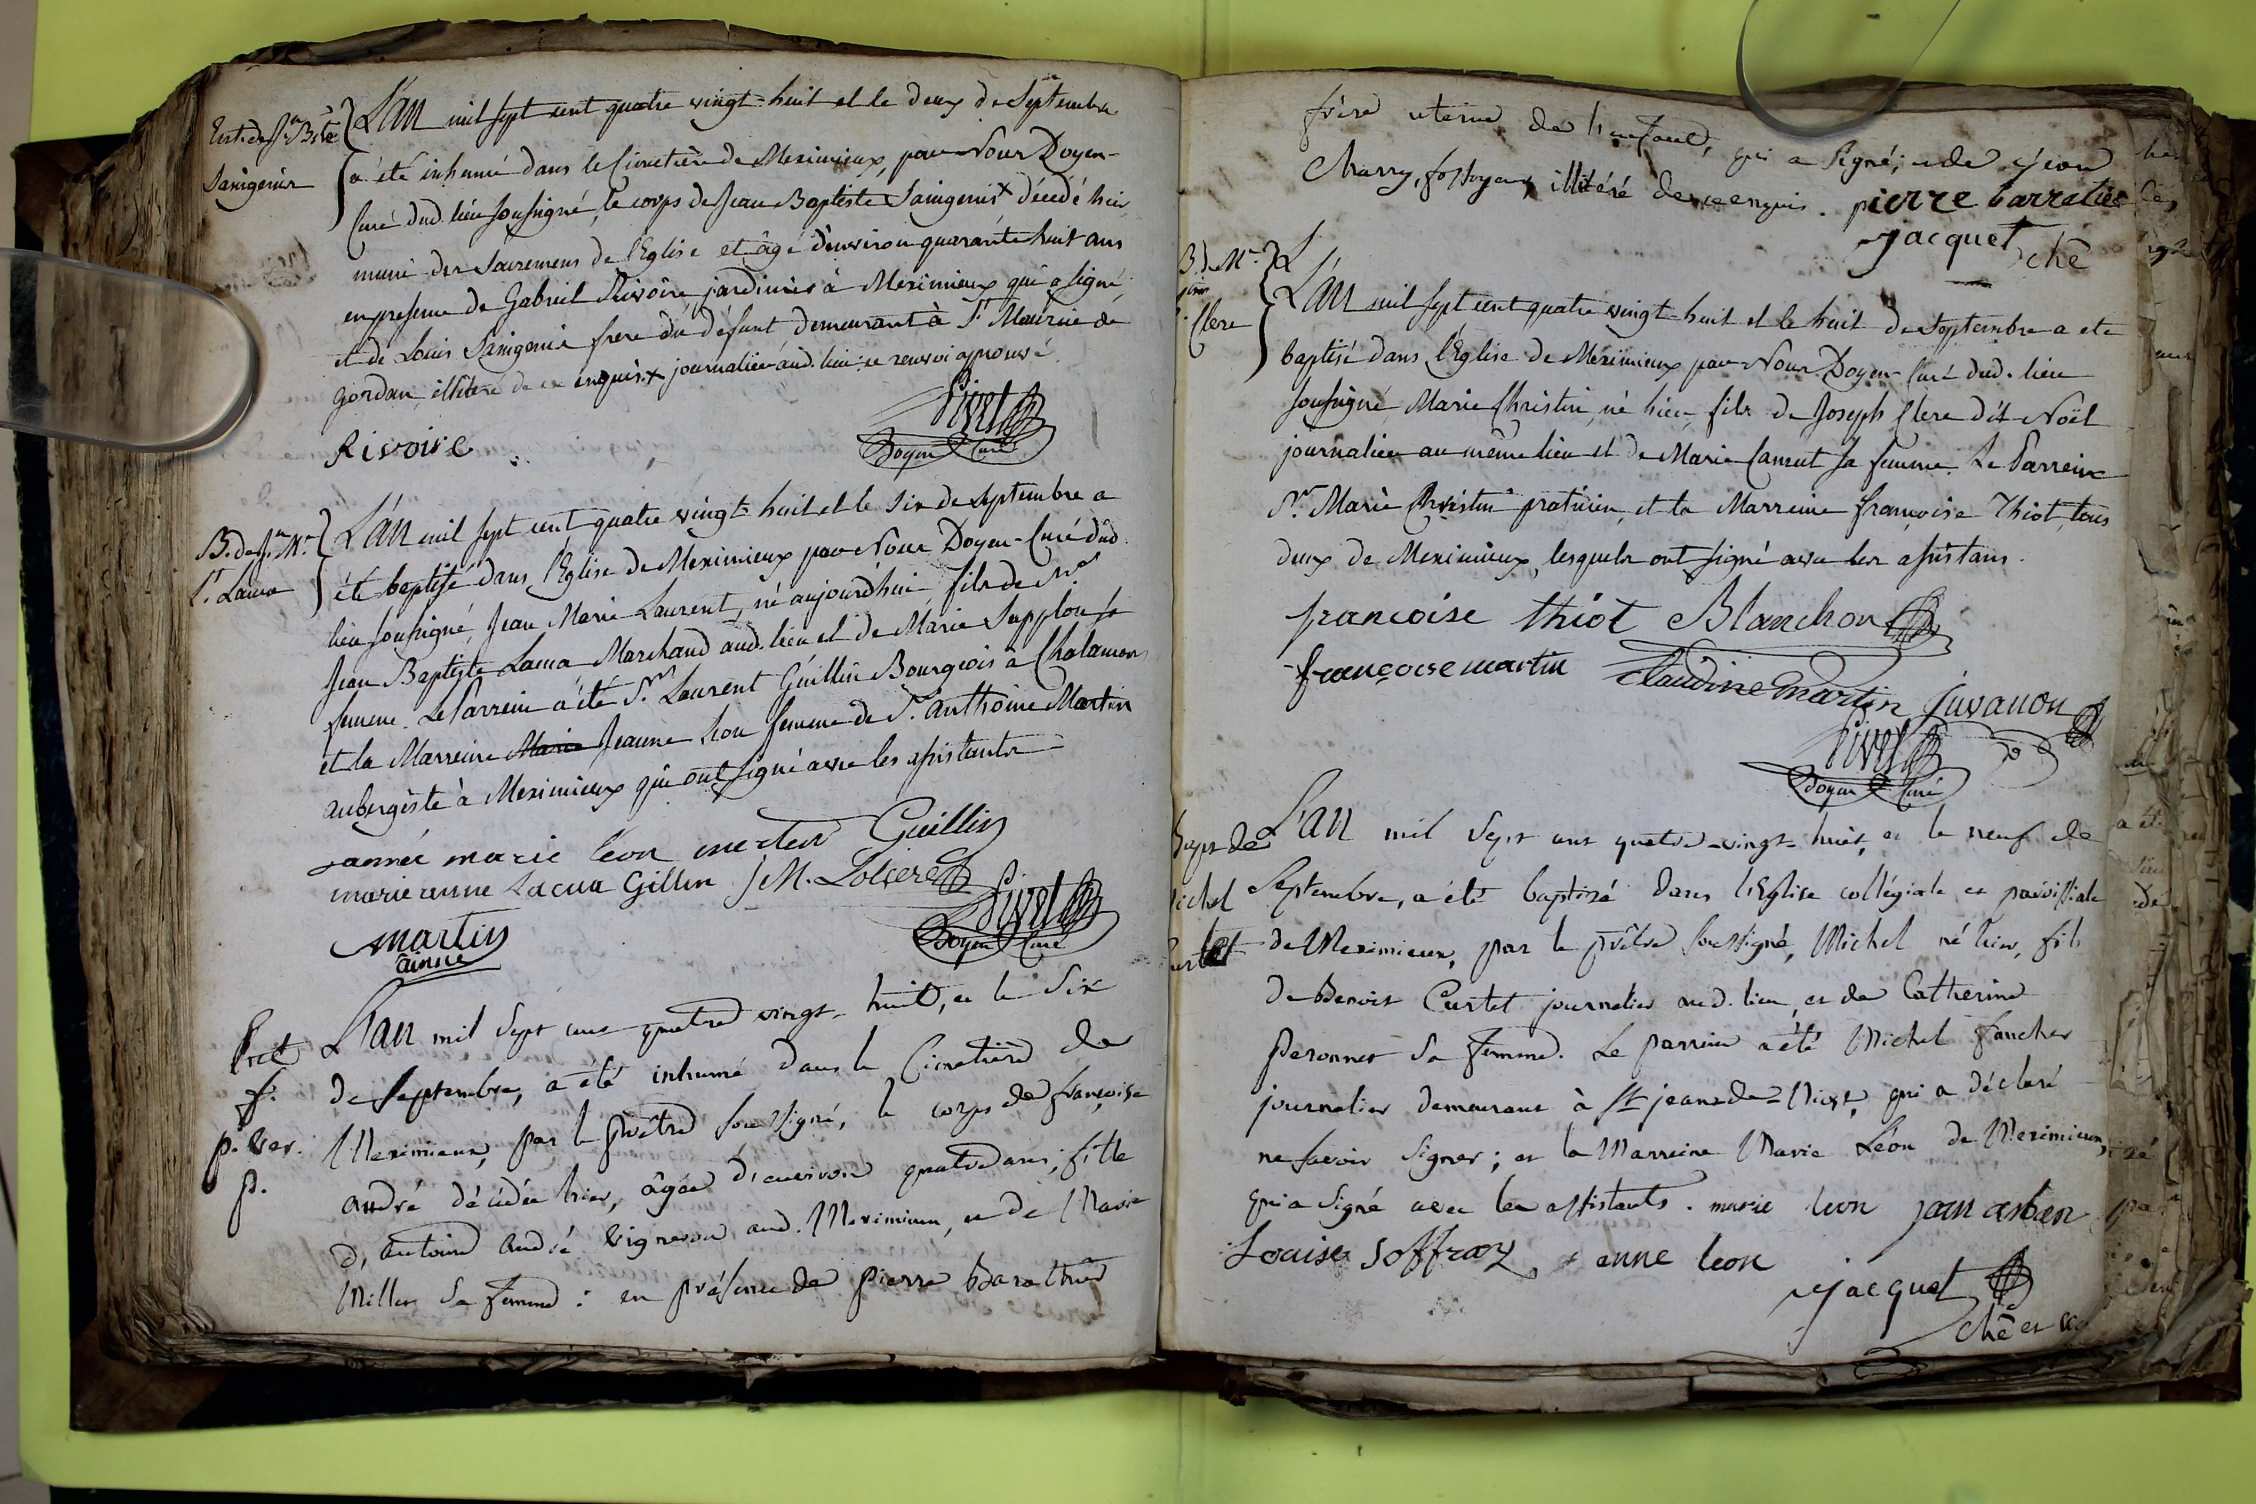 Ent. de Jn Bte
Sanigenis
L'an mil sept cent quatre vingt-huit et le deux de Septembre
a été inhumé dans le Cimetière de Meximieux, par Nous Doyen-
Curé dud. lieu soussigné, le corps de Jean Baptiste Sanigenis x décédé hier
muni des Sacremens de l'Eglise et âgé d'environ quarante huit ans
en presence de Gabriel Rivoire jardinier à Meximieux qui a signé
et de Louis Sanigenis frere du défunt demeurant à St Maurice de
Gordan, illitere de ce enquis. x journalier aud. lieu: ce renvoi aprouvé
Rivoire
Pivet
Doyen Curé
B. de Jn M.
Lt. Lacua
L'an mil sept cent quatre vingt-huit et le six de Septembre a
été baptisé dans l'Eglise de Meximieux par Nous Doyen-Curé dud.
lieu soussigné, Jean Marie Laurent, né aujourd'hui, fils de Sr
Jean Baptiste Lacua Marchand aud. lieu et de Marie Supplon sa
femme. Le Parrein a été Sr. Laurent Guillin Bourgeois à Chalamon
et la Marreine Marie Jeanne Léon femme de Sr. Anthoine Martin
aubergiste à Meximieux qui ont signé avec les assistants
janne marie leon merten Guillin
marie anne Lacua Gillin J M.
Pivet
Doyen Curé
martin
ainnie
f.
p. ver.
p.
L'an mil sept cens quatre vingt-huit, et le six
de Septembre, a été inhumé dans le Cimetière de
Meximieux, par le prêtre soussigné, le corps de françoise
André décédée hier, âgée d'environ quatre ans, fille
d'antoine André vigneron aud. Meximieux, et de Marie
Millet sa femme: en présence de Pierre Barathier
frère uterin de l'enfant, qui a signé; et de jean
Charry, fossoyeur, illitéré de ce enquis. pierre barratier
jacquet
chẽ
B. de Mie
Clere
L'an mil sept cent quatre vingt-huit et le huit de Septembre a ete
baptisé dans l'Eglise de Meximieux par Nous Doyen-Curé dud. lieu
soussigné, Marie Christin, né hier, fils de Joseph Clere dit Noël
journalier au même lieu et de Marie Camut sa femme. Le Parrein
Sr. Marie Christin praticien, et la Marreine françoise Thiot, tous
deux de Meximieux, lesquels ont signé avec les assistans.
francoise thiot Blanchon
françoise martin Claudine martin juvanon
Pivet
Doyen Curé
Bapt. de
Michel
Curtet
L'an mil sept cens quatre-vingt-huit, et le neuf de
Septembre, a été baptisé dans l'Eglise collégiale et paroissiale
de Meximieux, par le prêtre soussigné, Michel né hier, fils
de Benoit Curtet journalier aud. lieu, et de Catherine
Peronnet sa femme. Le parrein a été Michel faucher
journalier demeurant à St jean-de-Niost, qui a déclaré
ne savoir signer; et la Marreine Marie Léon de Meximieux,
qui a signé avec les assistants. marie leon
Louise Soffray anne leon
jacquet
chẽ et